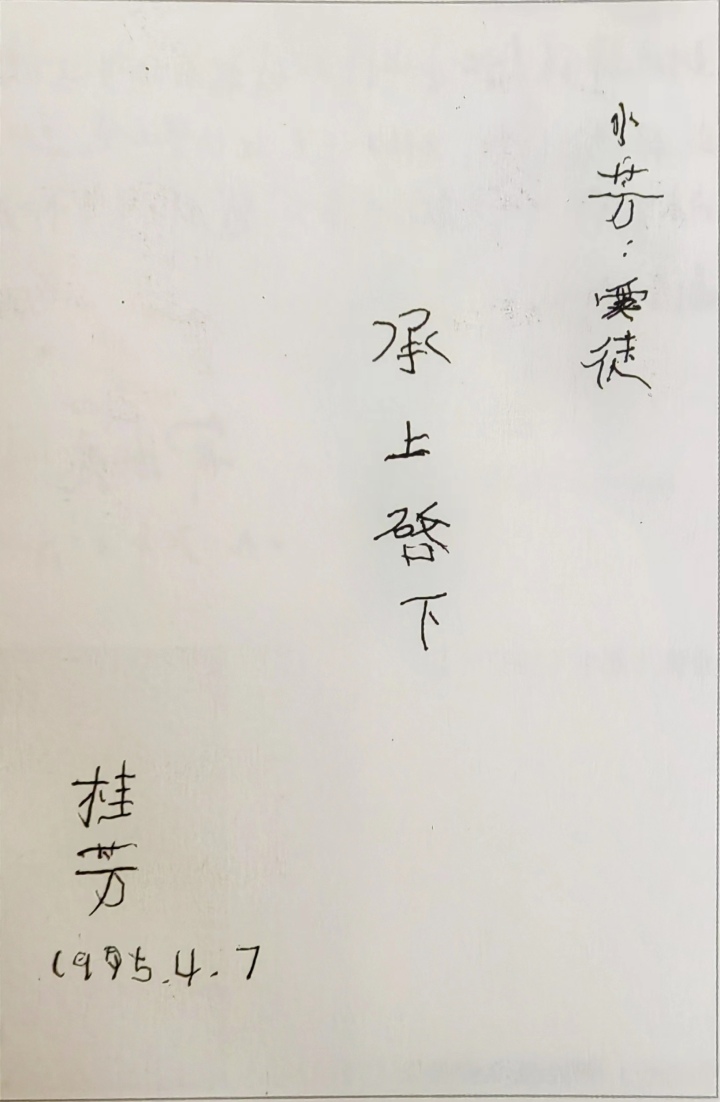 小芳：愛徒
承上啓下
桂芳
1995.4.7